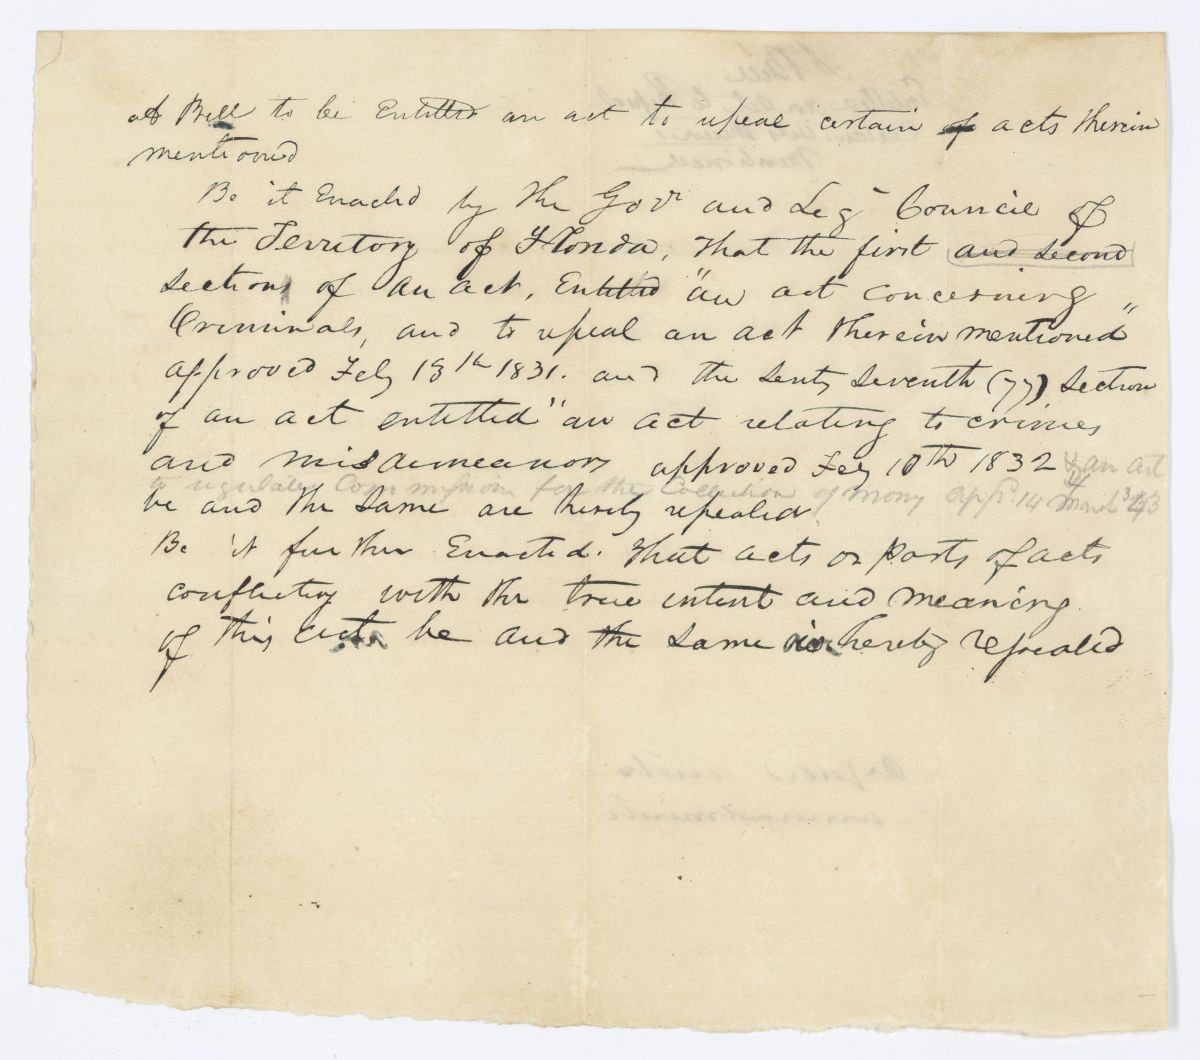 A Bill to be Entitled an act to repeal certain acts therein
mentioned
Be it Enacted by the Govr and Leg Council of
the Territory of Florida, that the first and second
sections of an act, Entitled "an act concerning
Criminals, and to repeal an act therein mentioned"
approved Feby 13th 1831. and the senty seventh (77) section
of an act entitled "an act relating to crimes
and misdemeanors approved Feby 10th 1832 & an act
to regulate Commissions for the Collection of Money March 43
be and the same are hereby repealed
Be it further Enacted. that acts or parts of acts
conflicting with the true intent and meaning
of this act be and the same is hereby repealed